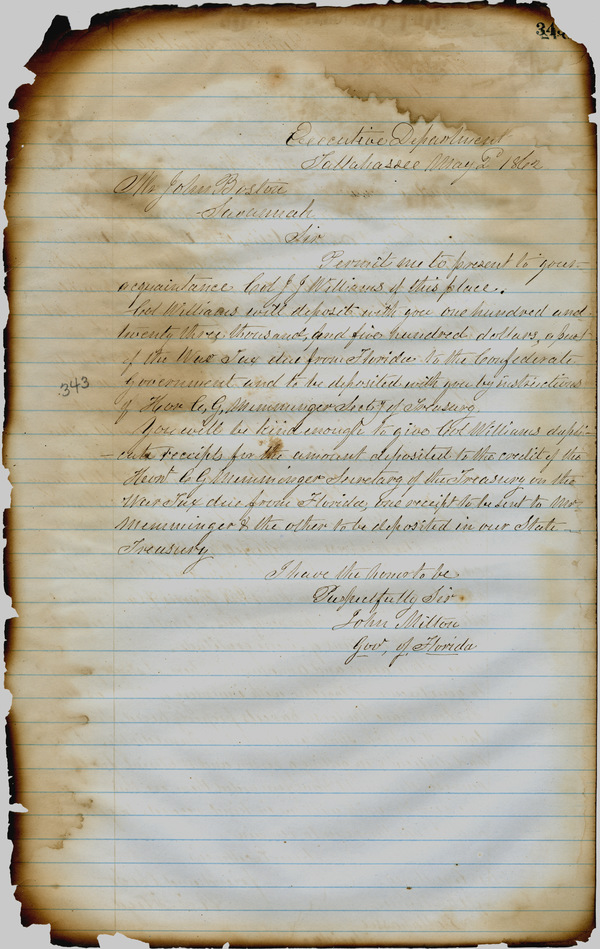 34
Executive Department
Tallahassee May 2d 1862
Mr John Boston
Savannah
Sir
Permit me to present to your
acquaintance Col J J Williams of this place.
Col Williams will deposit with you one hundred and
twenty three thousand, and five hundred dollars, a part
of the War Tax due from Florida to the Confederate
Government and to be deposited with you by instructions
of Honr C. G. Memminger Secty of Treasury.
343
You will be kind enough to give Col Williams dupli-
cate receipts for the amount deposited to the credit of the
Honr C G Memminger Secretary of the Treasury on the
War Tax due from Florida, one receipt to be sent to Mr
Memminger & the other to be deposited in our State
Treasury
I have the honor to be
Respectfully Sir
John Milton
Gov, of Florida